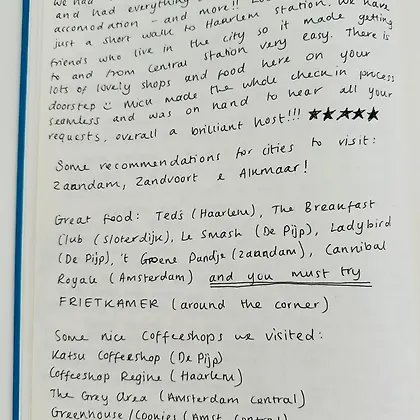 we had
and had everything
accomodation - and more!!
just a short walk to Haarlem station. We have
friends who live in the city so it made getting
to and from Central station very easy. There is
lots of lovely shops and food here on your
doorstep :) Nuch made the whole check in process
seamless and was on hand to hear all your
requests, overall a brilliant host!!! ★★★★★
Some recommendations for cities to visit:
Zaandam, Zandvoort & Alkmaar!
Great food: Teds (Haarlem), The Breakfast
Club (Sloterdijk), Le Smash (De Pijp), Ladybird
(De Pijp), 't Groene Pandje (Zaandam), Cannibal
Royale (Amsterdam) and you must try
FRIETKAMER (around the corner)
Some nice coffeeshops we visited:
Katsu Coffeeshop (De Pijp)
Coffeeshop Regine (Haarlem)
The Grey Area (Amsterdam Central)
Greenhouse / Cookies (Amst. Central)